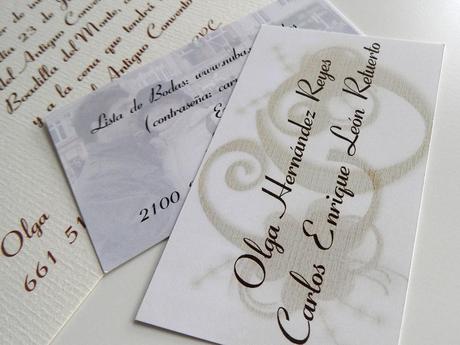 del Antiguo Convento
Boadilla del Monte,
y a la cena que tendrá
del Antiguo Convento
Olga
661 51
Lista de Bodas: www.
(contraseña:
2100
Olga Hernández Reyes
Carlos Enrique León Retuerto